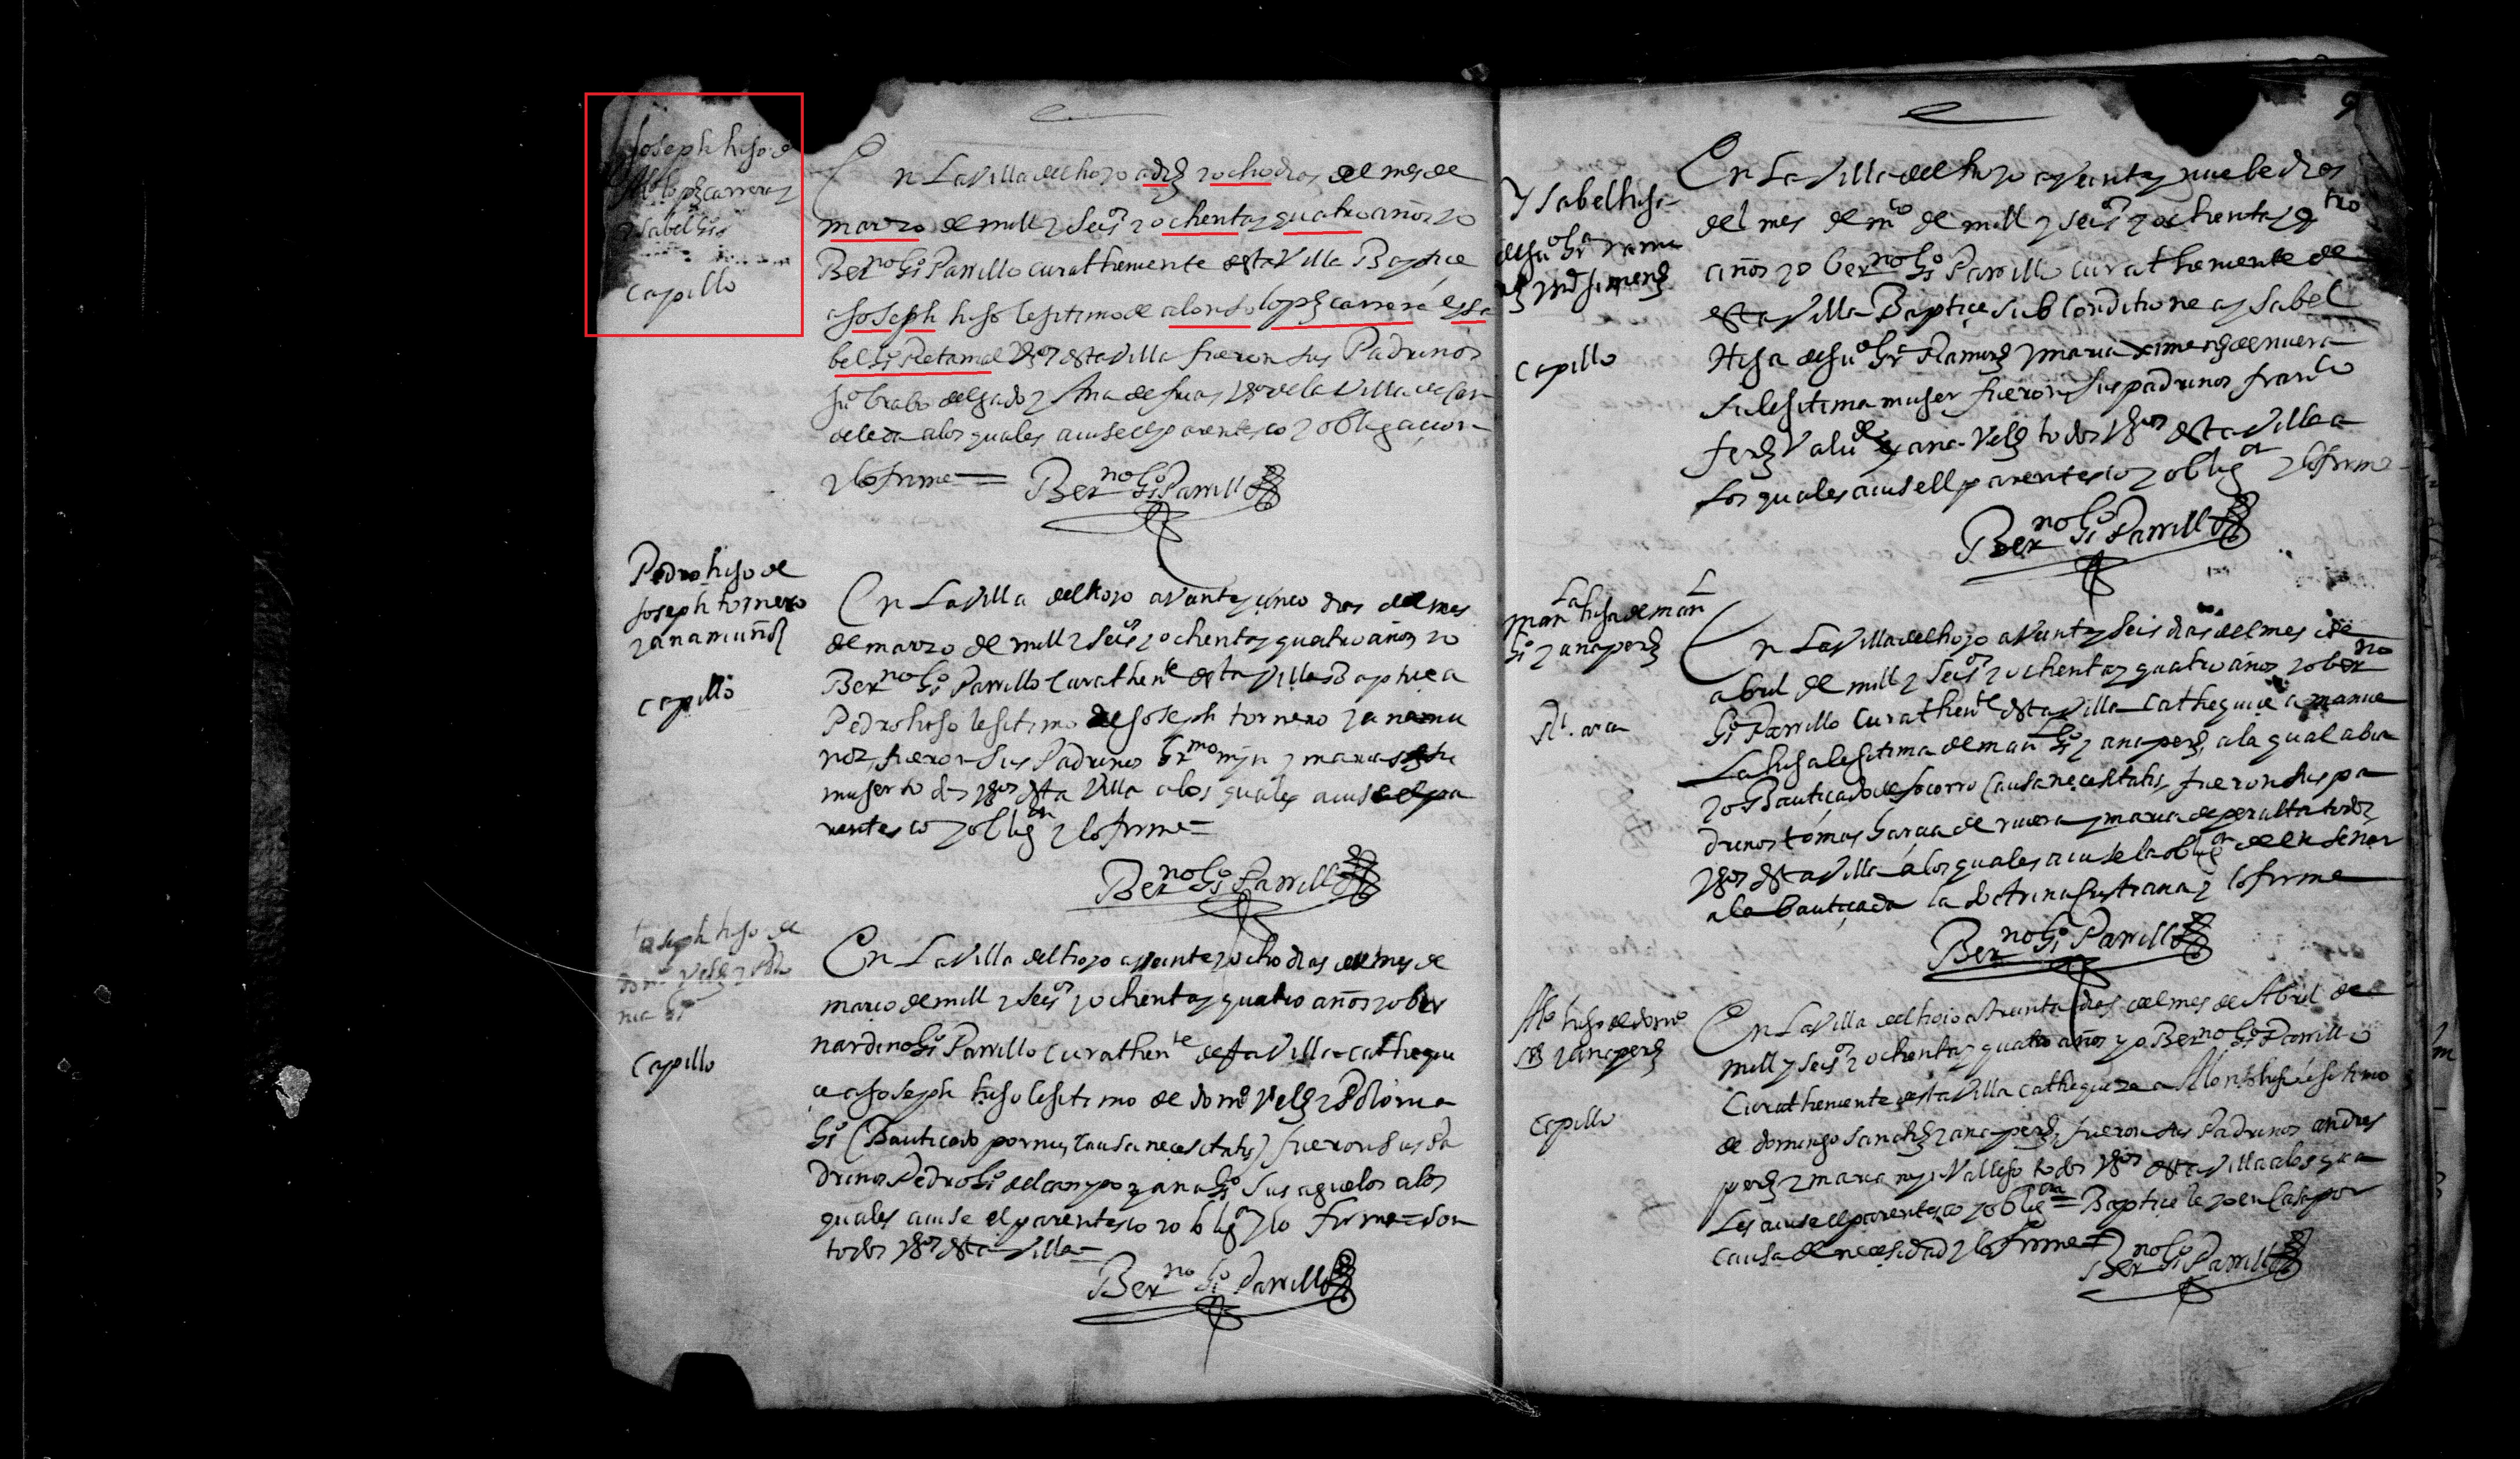 Joseph hijo de
Alº lopz carrera y
ysabel Gª
capillo
En La Villa del hoyo a diez y ocho dias del mes de
marzo de mill y Seisº y ochenta y quatro años yo
Berno Gª Parrillo cura theniente desta Villa Baptice
a Joseph hijo lesitimo de alonso lopz carrera e ysa
bel Gª Retamal Vºs desta Villa fueron sus Padrinos
Juº brabo delgado y Ana de frias Vºs de la Villa de
a los quales avise el parentesco y obligacion
y lo firme = Berno Gª Parrillo
Pedro hijo de
Joseph tornero
y ana muñoz
capillo
En La Villa del hoyo a veinte y cinco dias del mes
de marzo de mill y Seisº y ochenta y quatro años yo
Berno Gª Parrillo Cura thente desta Villa Baptice a
Pedro hijo lesitimo de Joseph tornero y ana mu
ñoz, fueron sus Padrinos y maria su
muger todos Vºs desta Villa a los quales avise el pa
rentesco y obligon y lo firme =
Berno Gª Parrillo
Joseph hijo de
Domº Velz y Polo
nia Gª
Capillo
En La Villa del hoyo a veinte y ocho dias del mes de
março de mill y Seisº y ochenta y quatro años yo ber
nardino Gª Parrillo cura thente desta Villa cathequi
çe a Joseph hijo lesitimo de Domº Velz y Polonia
Gª (Bautiçado por mi, causa necesitatis) fueron sus Pa
drinos Pedro Gª del campo y ana Gª sus aguelos a los
quales avise el parentesco y obligon y lo firme = son
todos Vºs desta Villa =
Berno Gª Parrillo
9
Ysabel hija
de Juº y maria
capillo
En La Villa del hoyo a veinte y nuebe dias
del mes de mço de mill y Seisº y ochenta y qtro
años yo Berno Gª Parrillo cura theniente de
esta Villa Baptiçe sub conditione a ysabel
Hija de Juº y maria ximenez de nuera
su lesitima muger fueron sus padrinos franco
ferz y ana Velz todos Vºs desta Villa a
los quales avise el parentesco y obligon y lo firme
Berno Gª Parrillo
Manla hija de Manl
Gª y ana perz
En La Villa del hoyo a veinte y seis dias del mes de
abril de mill y Seisº y ochenta y quatro años yo berno
Gª Parrillo Cura thente desta Villa Cathequiçe a manue
La hija lesitima de manl Gª y ana perz, a la qual abia
yo Bautiçado de socorro causa necesitatis, fueron sus pa
drinos tomas Garcia de rivera y maria de peralta todos
Vºs desta Villa a los quales avise la obligon de enseñar
a la bautiçada la doctrina cristiana y lo firme
Berno Gª Parrillo
Alº hijo de domº
y ana perz
Capillo
En La Villa del hoyo a treinta dias del mes de Abril de
mill y Seisº y ochenta y quatro años yo Berno Gª Parrillo
Cura theniente desta Villa cathequize a Alonso hijo lesitimo
de domingo sanchz y ana perz, fueron sus Padrinos andres
perz y maria Vallejo todos Vºs desta Villa a los qua
Les avise el parentesco y obligon = Baptiçele yo en casa por
causa de necesidad y lo firme =
Berno Gª Parrillo